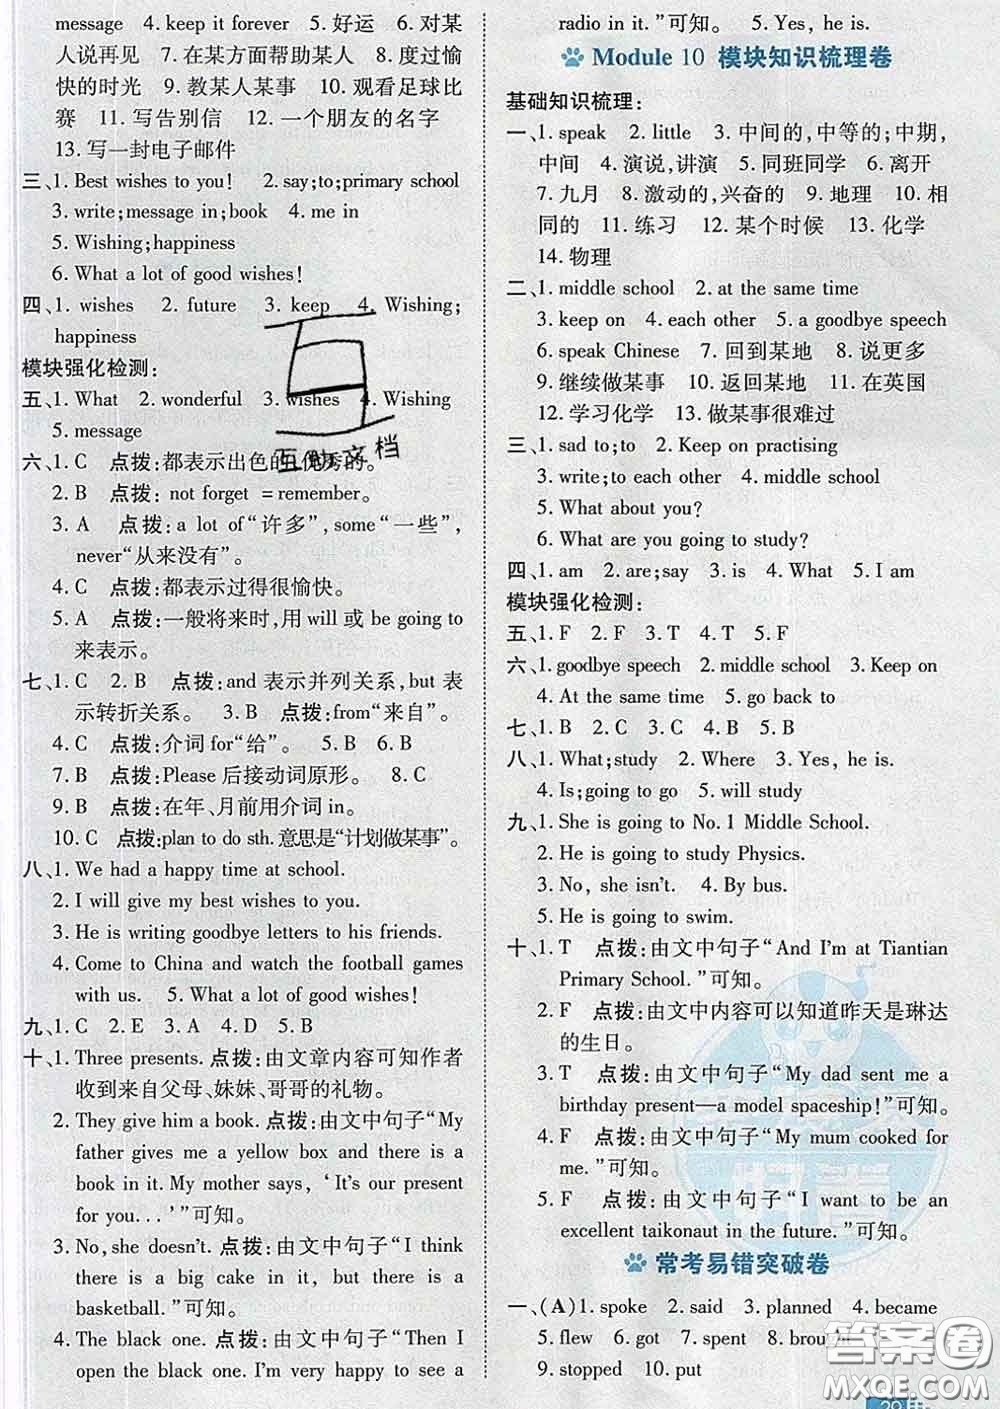 message 4. keep it forever 5. 好运 6. 对某
人说再见 7. 在某方面帮助某人 8. 度过愉
快的时光 9. 教某人某事 10. 观看足球比
赛 11. 写告别信 12. 一个朋友的名字
13. 写一封电子邮件
三、1. Best wishes to you! 2. say;to;primary school
3. write;message in;book 4. me in
5. Wishing;happiness
6. What a lot of good wishes!
四、1. wishes 2. future 3. keep 4. Wishing;
happiness
模块强化检测:
五、1. What 2. wonderful 3. wishes 4. Wishing
5. message
六、1. C 点拨:都表示出色的、优秀的。
2. B 点拨: not forget = remember。
3. A 点拨: a lot of“许多”, some“一些”,
never“从来没有”。
4. C 点拨:都表示过得很愉快。
5. A 点拨:一般将来时,用 will 或 be going to
来表示。
七、1. C 2. B 点拨:and 表示并列关系,but 表
示转折关系。 3. B 点拨:from“来自”。
4. C 点拨:介词 for“给”。 5. B 6. B
7. B 点拨:Please 后接动词原形。 8. C
9. B 点拨:在年、月前用介词 in。
10. C 点拨:plan to do sth. 意思是“计划做某事”。
八、1. We had a happy time at school.
2. I will give my best wishes to you.
3. He is writing goodbye letters to his friends.
4. Come to China and watch the football games
with us. 5. What a lot of good wishes!
九、1. C 2. E 3. A 4. D 5. B
十、1. Three presents. 点拨:由文章内容可知作者
收到来自父母、妹妹、哥哥的礼物。
2. They give him a book. 点拨:由文中句子“My
father gives me a yellow box and there is a
book in it. My mother says, ‘It's our present
for you...’”可知。
3. No, she doesn't. 点拨:由文中句子“I think
there is a big cake in it, but there is a
basketball.”可知。
4. The black one. 点拨:由文中句子“Then I
open the black one. I'm very happy to see a
radio in it.”可知。 5. Yes, he is.
Module 10 模块知识梳理卷
基础知识梳理:
一、1. speak 2. little 3. 中间的,中等的;中期,
中间 4. 演说,讲演 5. 同班同学 6. 离开
7. 九月 8. 激动的,兴奋的 9. 地理 10. 相
同的 11. 练习 12. 某个时候 13. 化学
14. 物理
二、1. middle school 2. at the same time
3. keep on 4. each other 5. a goodbye speech
6. speak Chinese 7. 回到某地 8. 说更多
9. 继续做某事 10. 返回某地 11. 在英国
12. 学习化学 13. 做某事很难过
三、1. sad to;to 2. Keep on practising
3. write;to each other 4. middle school
5. What about you?
6. What are you going to study?
四、1. am 2. are;say 3. is 4. What 5. I am
模块强化检测:
五、1. F 2. F 3. T 4. T 5. F
六、1. goodbye speech 2. middle school 3. Keep on
4. At the same time 5. go back to
七、1. B 2. C 3. C 4. B 5. B
八、1. What;study 2. Where 3. Yes, he is.
4. Is;going to go 5. will study
九、1. She is going to No. 1 Middle School.
2. He is going to study Physics.
3. No, she isn't. 4. By bus.
5. He is going to swim.
十、1. T 点拨:由文中句子“And I'm at Tiantian
Primary School.”可知。
2. F 点拨:由文中内容可以知道昨天是琳达
的生日。
3. T 点拨:由文中句子“My dad sent me a
birthday present—a model spaceship!”可知。
4. F 点拨:由文中句子“My mum cooked for
me.”可知。
5. F 点拨:由文中句子“I want to be an
excellent taikonaut in the future.”可知。
常考易错突破卷
一、(A)1. spoke 2. said 3. planned 4. became
5. flew 6. got 7. spent 8. brought
9. stopped 10. put
互助文档
答案圈
MXQE.COM